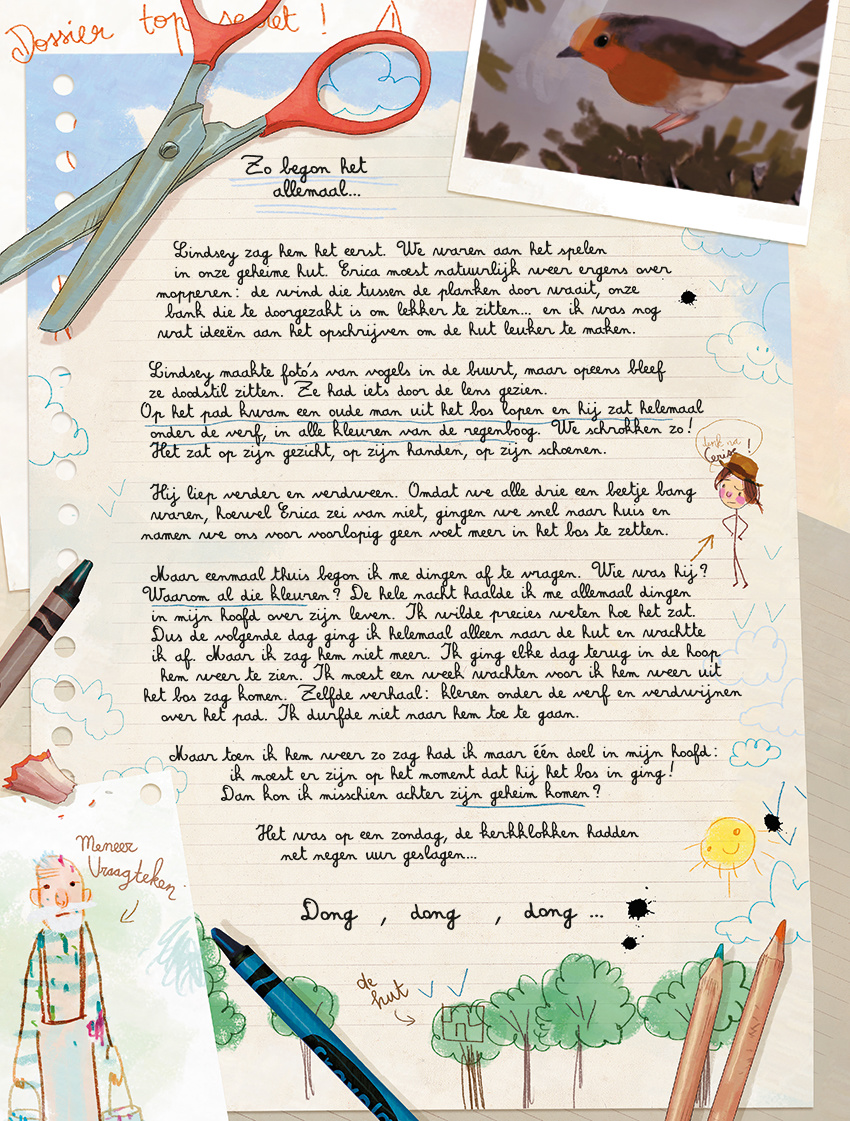 Dossier top secret !
Zo begon het
allemaal...
Lindsey zag hem het eerst. We waren aan het spelen
in onze geheime hut. Erica moest natuurlijk weer ergens over
mopperen: de wind die tussen de planken door waait, onze
bank die te doorgezakt is om lekker te zitten... en ik was nog
wat ideeën aan het opschrijven om de hut leuker te maken.
Lindsey maakte foto's van vogels in de buurt, maar opeens bleef
ze doodstil zitten. Ze had iets door de lens gezien.
Op het pad kwam een oude man uit het bos lopen en hij zat helemaal
onder de verf, in alle kleuren van de regenboog. We schrokken zo!
Het zat op zijn gezicht, op zijn handen, op zijn schoenen.
denk na
Cerise !
Hij liep verder en verdween. Omdat we alle drie een beetje bang
waren, hoewel Erica zei van niet, gingen we snel naar huis en
namen we ons voor voorlopig geen voet meer in het bos te zetten.
Maar eenmaal thuis begon ik me dingen af te vragen. Wie was hij?
Waarom al die kleuren? De hele nacht haalde ik me allemaal dingen
in mijn hoofd over zijn leven. Ik wilde precies weten hoe het zat.
Dus de volgende dag ging ik helemaal alleen naar de hut en wachtte
ik af. Maar ik zag hem niet meer. Ik ging elke dag terug in de hoop
hem weer te zien. Ik moest een week wachten voor ik hem weer uit
het bos zag komen. Zelfde verhaal: kleren onder de verf en verdwijnen
over het pad. Ik durfde niet naar hem toe te gaan.
Maar toen ik hem weer zo zag had ik maar één doel in mijn hoofd:
ik moest er zijn op het moment dat hij het bos in ging!
Dan kon ik misschien achter zijn geheim komen?
Het was op een zondag, de kerkklokken hadden
net negen uur geslagen...
Dong , dong , dong ...
Meneer
Vraagteken
de
hut